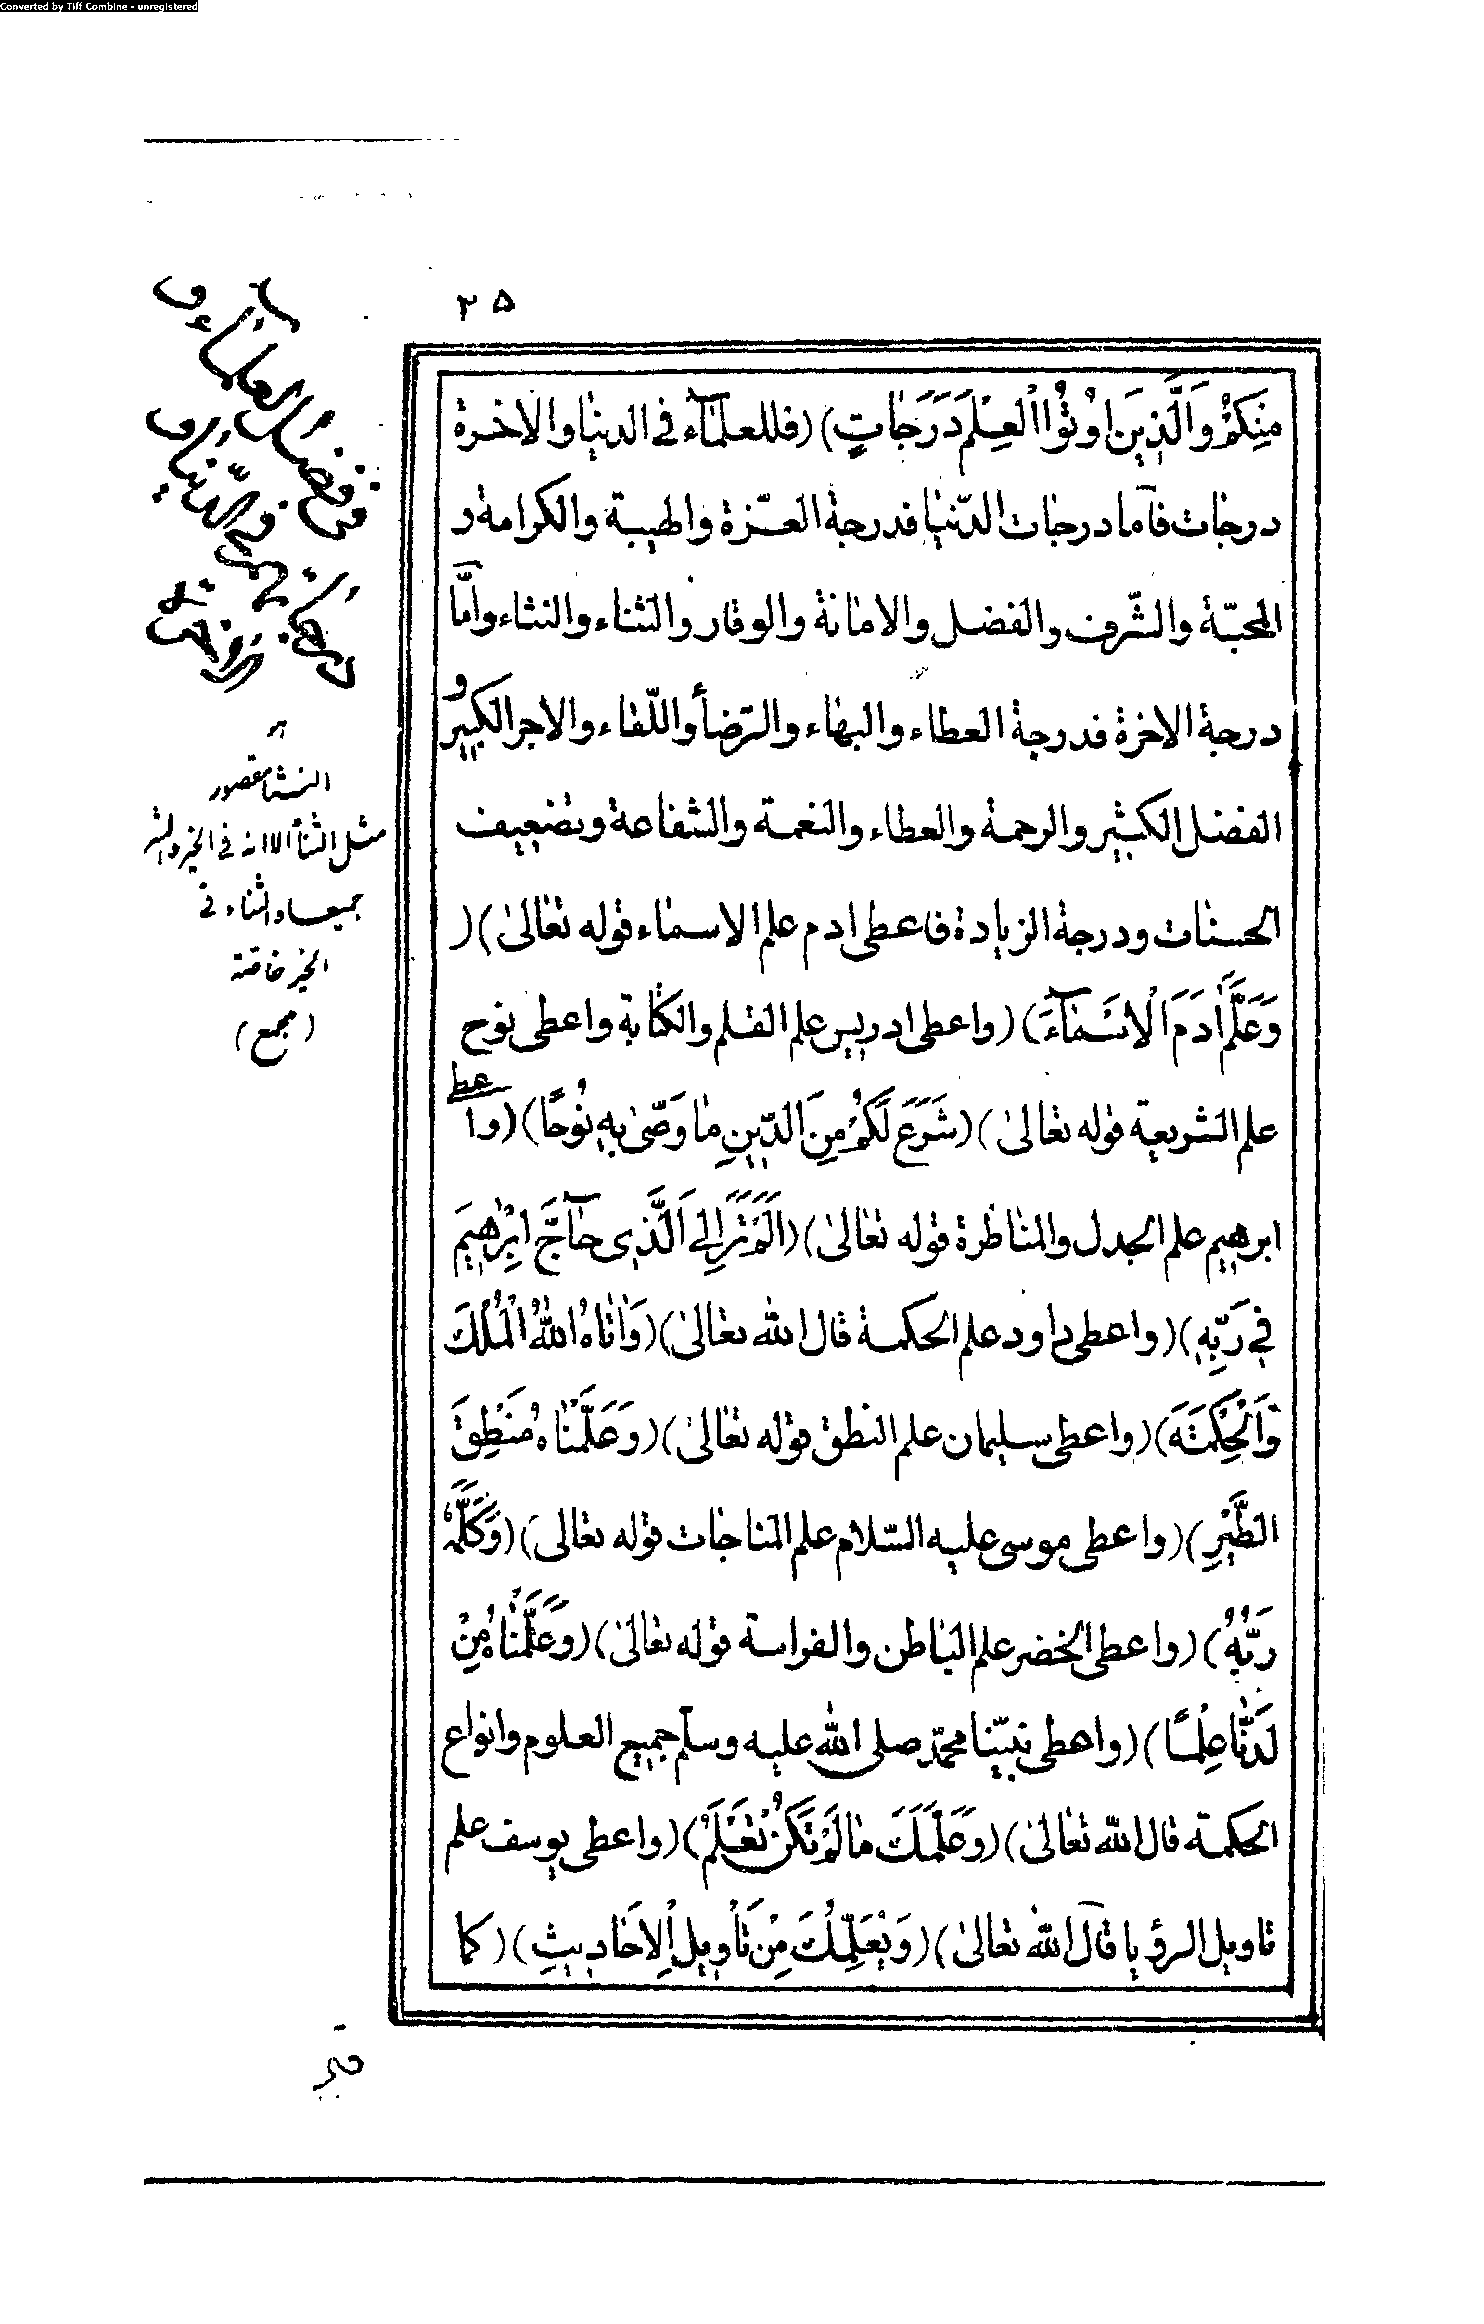 Converted by Tiff Combine - unregistered
٢٥
مِنْكُمْ وَالَّذِينَ اُوتُوا الْعِلْمَ دَرَجَاتٍ) (فللعلمآء فى الدنيا والاخرة
درجات فآما درجات الدّنيا فدرجة العزّة والهيبة والكرامة و
المحبّة والشّرف والفضل والامانة والوقار والثناء والنثاء وامّا
درجة الاخرة فدرجة العطاء والبهاء والرّضأ واللّقاء والاجر الكبير و
الفضل الكثير والرحمة والعطاء والنعمة والشفاعة وتضعيف
الحسنات ودرجة الزيادة فاعطى ادم علم الاسماء قوله تعالى) (
وَعَلَّمَ اٰدَمَ الْاَسْمَآءَ) (واعطى ادريس علم القلم والكتابة واعطى نوح
علم الشريعة قوله تعالى) (شَرَعَ لَكُمْ مِنَ الدّينِ مٰا وَصّىٰ بِهِ نُوحًا) (واعط
ابرهيم علم الجدل والمناظرة قوله تعالى) (اَلَمْ تَرَ اِلَى الَّذِى حٰآجَّ اِبْرٰهِيمَ
فِى رَبِّهِ) (واعطى داود علم الحكمة قال الله تعالى) (وَاٰتٰاهُ اللّٰهُ الْمُلْكَ
وَالْحِكْمَةَ) (واعطى سليمان علم النطق قوله تعالى) (وَعَلَّمْنٰاهُ مَنْطِقَ
الطَّيْرِ) (واعطى موسى عليه السّلام علم المناجات قوله تعالى) (وَكَلَّمَهُ
رَبُّهُ) (واعطى الخضر علم الباطن والفراسة قوله تعالى) (وَعَلَّمْنٰاهُ مِنْ
لَدُنّٰا عِلْمًا) (واعطى نبيّنا محمّد صلى الله عليه وسلّم جميع العلوم وانواع
الحكمة قال الله تعالى) (وَعَلَّمَكَ مٰا لَمْ تَكُنْ تَعْلَمْ) (واعطى يوسف علم
تاويل الرؤيا قال الله تعالى) (وَيُعَلِّمُكَ مِنْ تَأْوِيلِ الْاَحٰادِيثِ) (كما
فى فضل العلمآء و
فى الدّنيا و
النثا مقصور
مثل الثنأ الا انه فى الخير والشر
جميعا والثناء فى
الخير خاصّة
(مجمع)